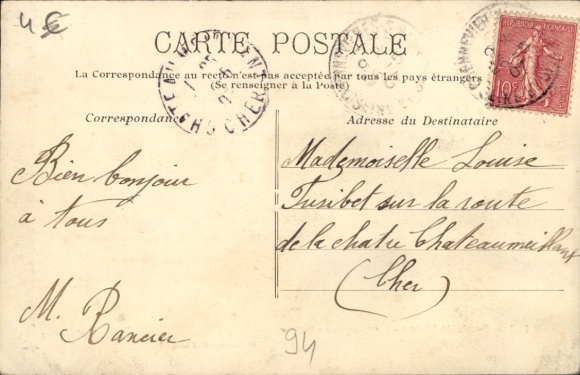 4€
CARTE POSTALE
La Correspondance au recto n'est pas acceptée par tous les pays étrangers
(Se renseigner à la Poste)
RÉPUBLIQUE FRANÇAISE
10c
Correspondance
Adresse du Destinataire
Bien bonjour
à tous
M. Rancier
Mademoiselle Louise
Turibet sur la route
de la chatre Chateaumeillant
(Cher)
94
CHATEAUMEILLANT
CHER